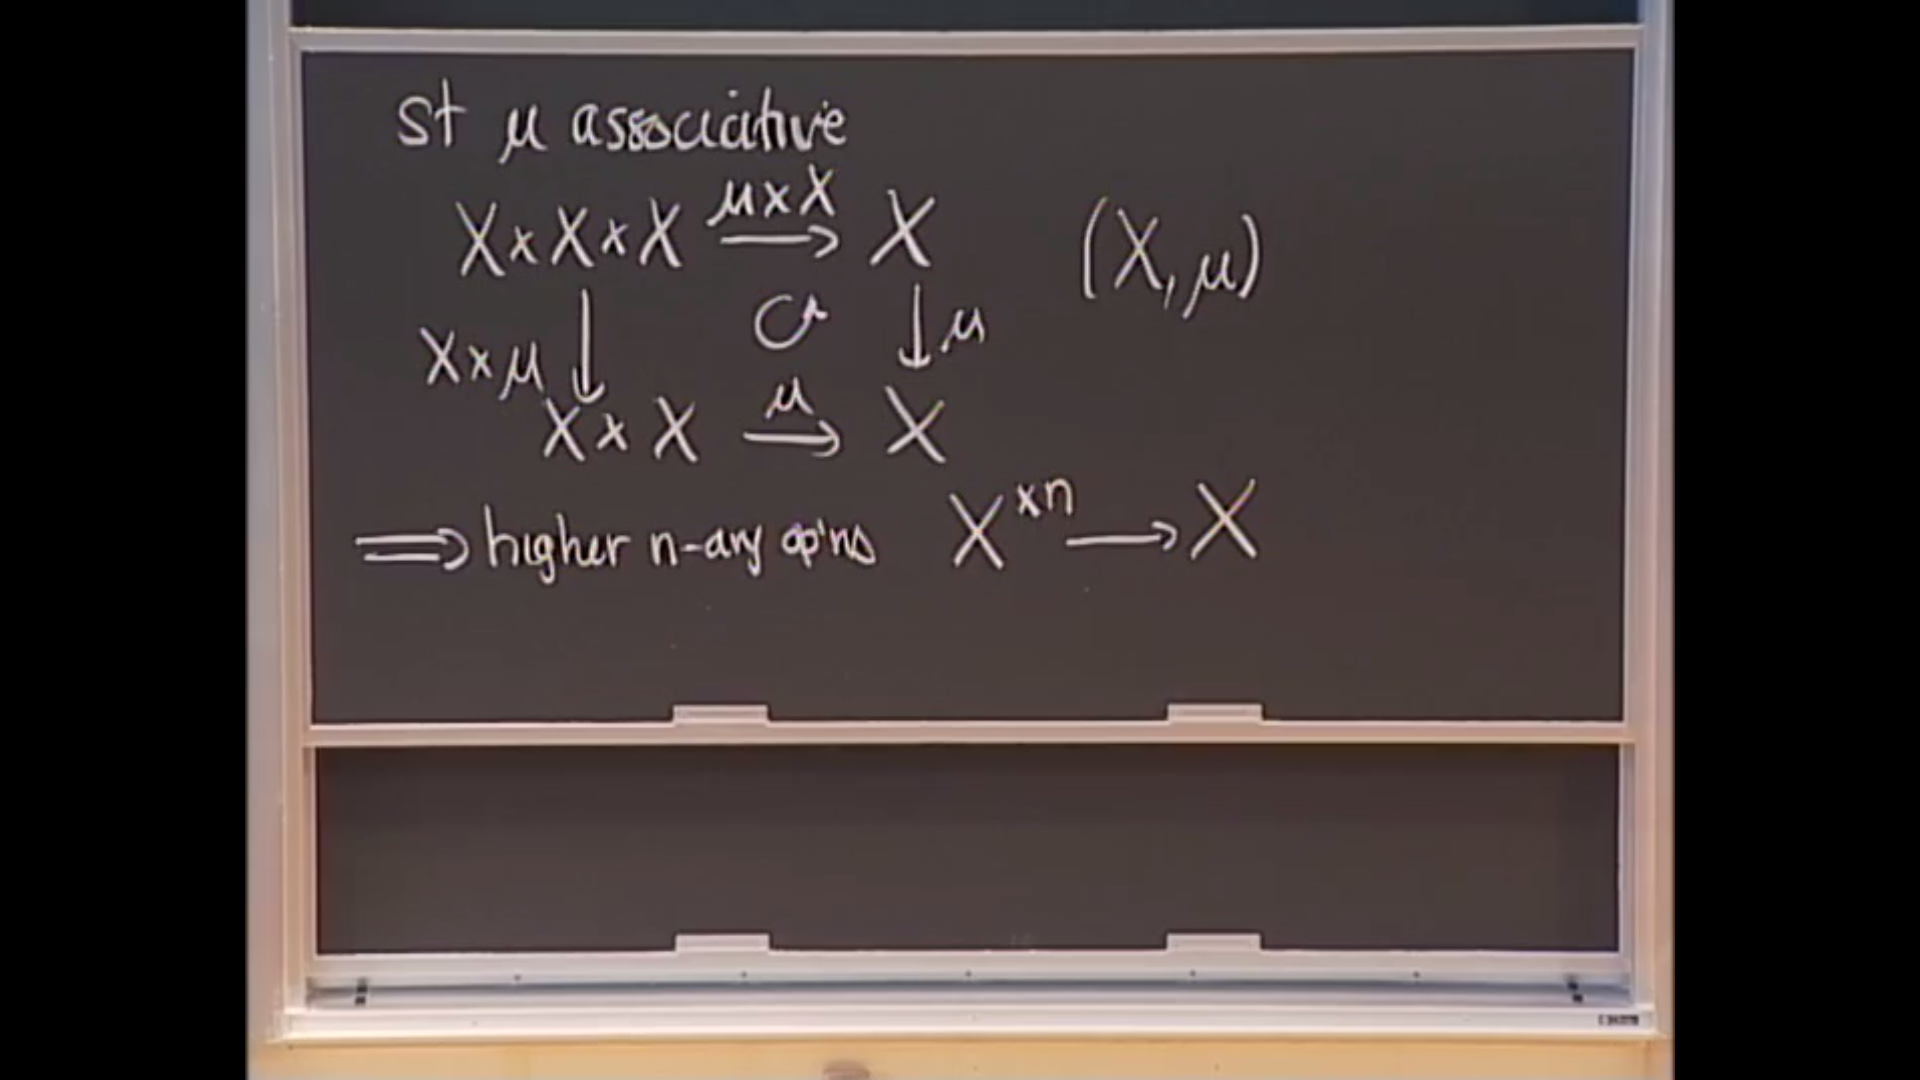 st μ associative
μ×X
X×X×X ⟶ X
(X, μ)
X×μ ↓ ↺ ↓ μ
μ
X×X ⟶ X
⟹ higher n-ary op'ns X^{×n} ⟶ X